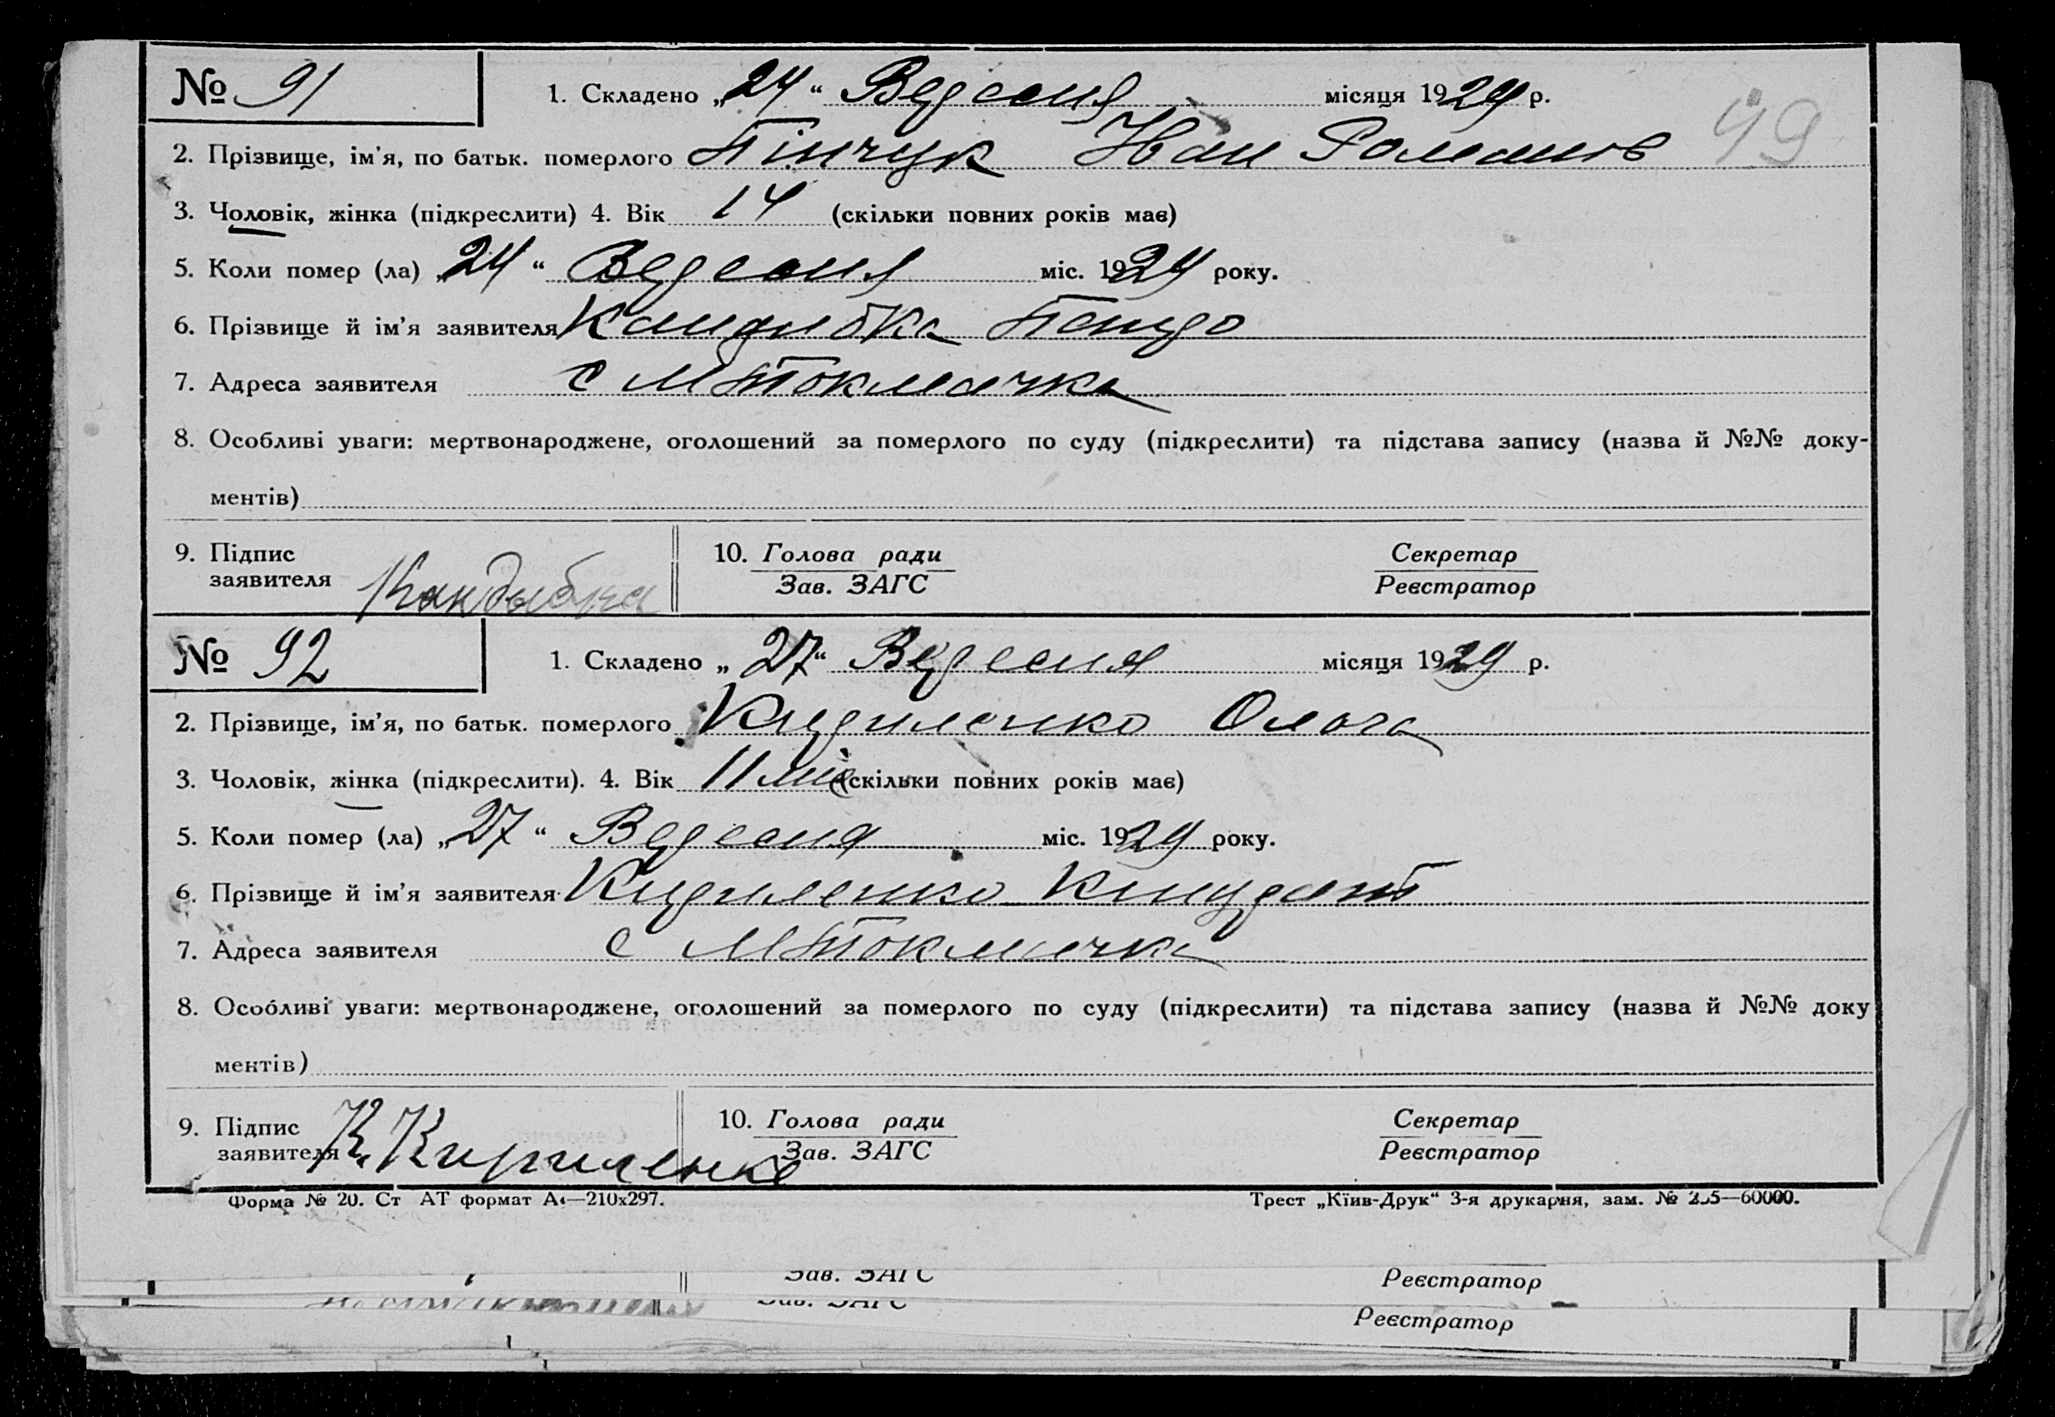 № 91 1. Складено „24“ Вересня місяця 1929 р.
49
2. Прізвище, ім'я, по батьк. померлого Пінчук Иван Романов
3. Чоловік, жінка (підкреслити) 4. Вік 14 (скільки повних років має)
5. Коли помер (ла) „24“ Вересня міс. 1929 року.
6. Прізвище й ім'я заявителя Кандибка
7. Адреса заявителя с М Токмачка
8. Особливі уваги: мертвонароджене, оголошений за померлого по суду (підкреслити) та підстава запису (назва й №№ доку-
ментів)
9. Підпис 10. Голова ради Секретар
заявителя Кандыбка Зав. ЗАГС Реєстратор
№ 92 1. Складено „27“ Вересня місяця 1929 р.
2. Прізвище, ім'я, по батьк. померлого Кириленко Ольга
3. Чоловік, жінка (підкреслити). 4. Вік 11 міс (скільки повних років має)
5. Коли помер (ла) „27“ Вересня міс. 1929 року.
6. Прізвище й ім'я заявителя Кириленко
7. Адреса заявителя с М Токмачка
8. Особливі уваги: мертвонароджене, оголошений за померлого по суду (підкреслити) та підстава запису (назва й №№ доку
ментів)
9. Підпис 10. Голова ради Секретар
заявителя К. Кириленко Зав. ЗАГС Реєстратор
Форма № 20. Ст АТ формат А4—210x297. Трест „Київ-Друк“ 3-я друкарня, зам. № —60000.
Зав. ЗАГС Реєстратор
Зав. ЗАГС
Реєстратор